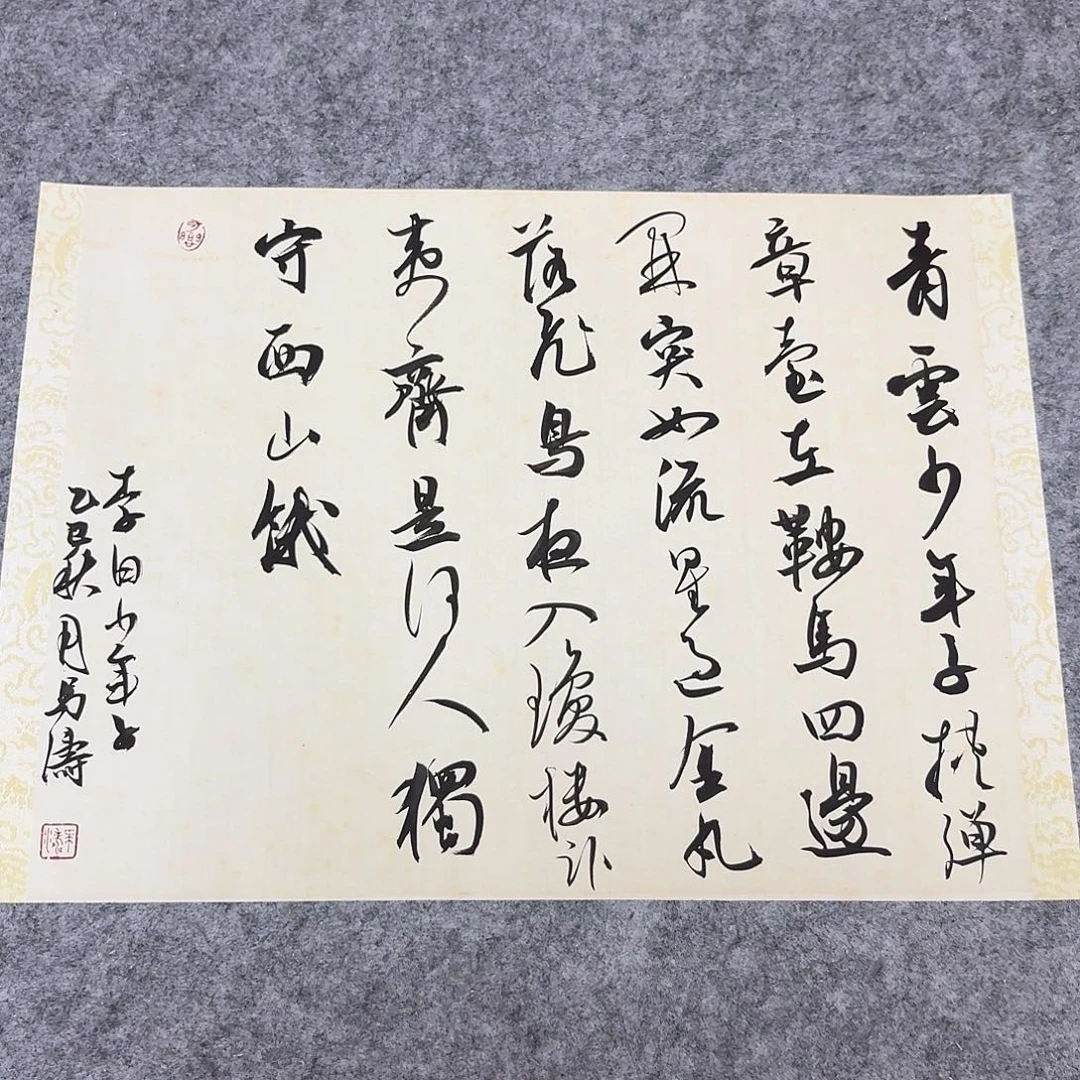 青雲少年子挾彈
章臺左鞍馬四邊
開突如流星過金丸
落飛鳥夜入瓊樓臥
夷齊是何人獨
守西山餓
李白少年子
乙巳秋月馬濤